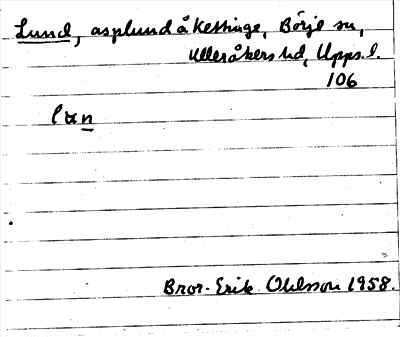 Lund, asplund å Kettinge, Börje sn,
Ulleråkers hd, Upps. l.
106
Bror-Erik Ohlsson 1958.